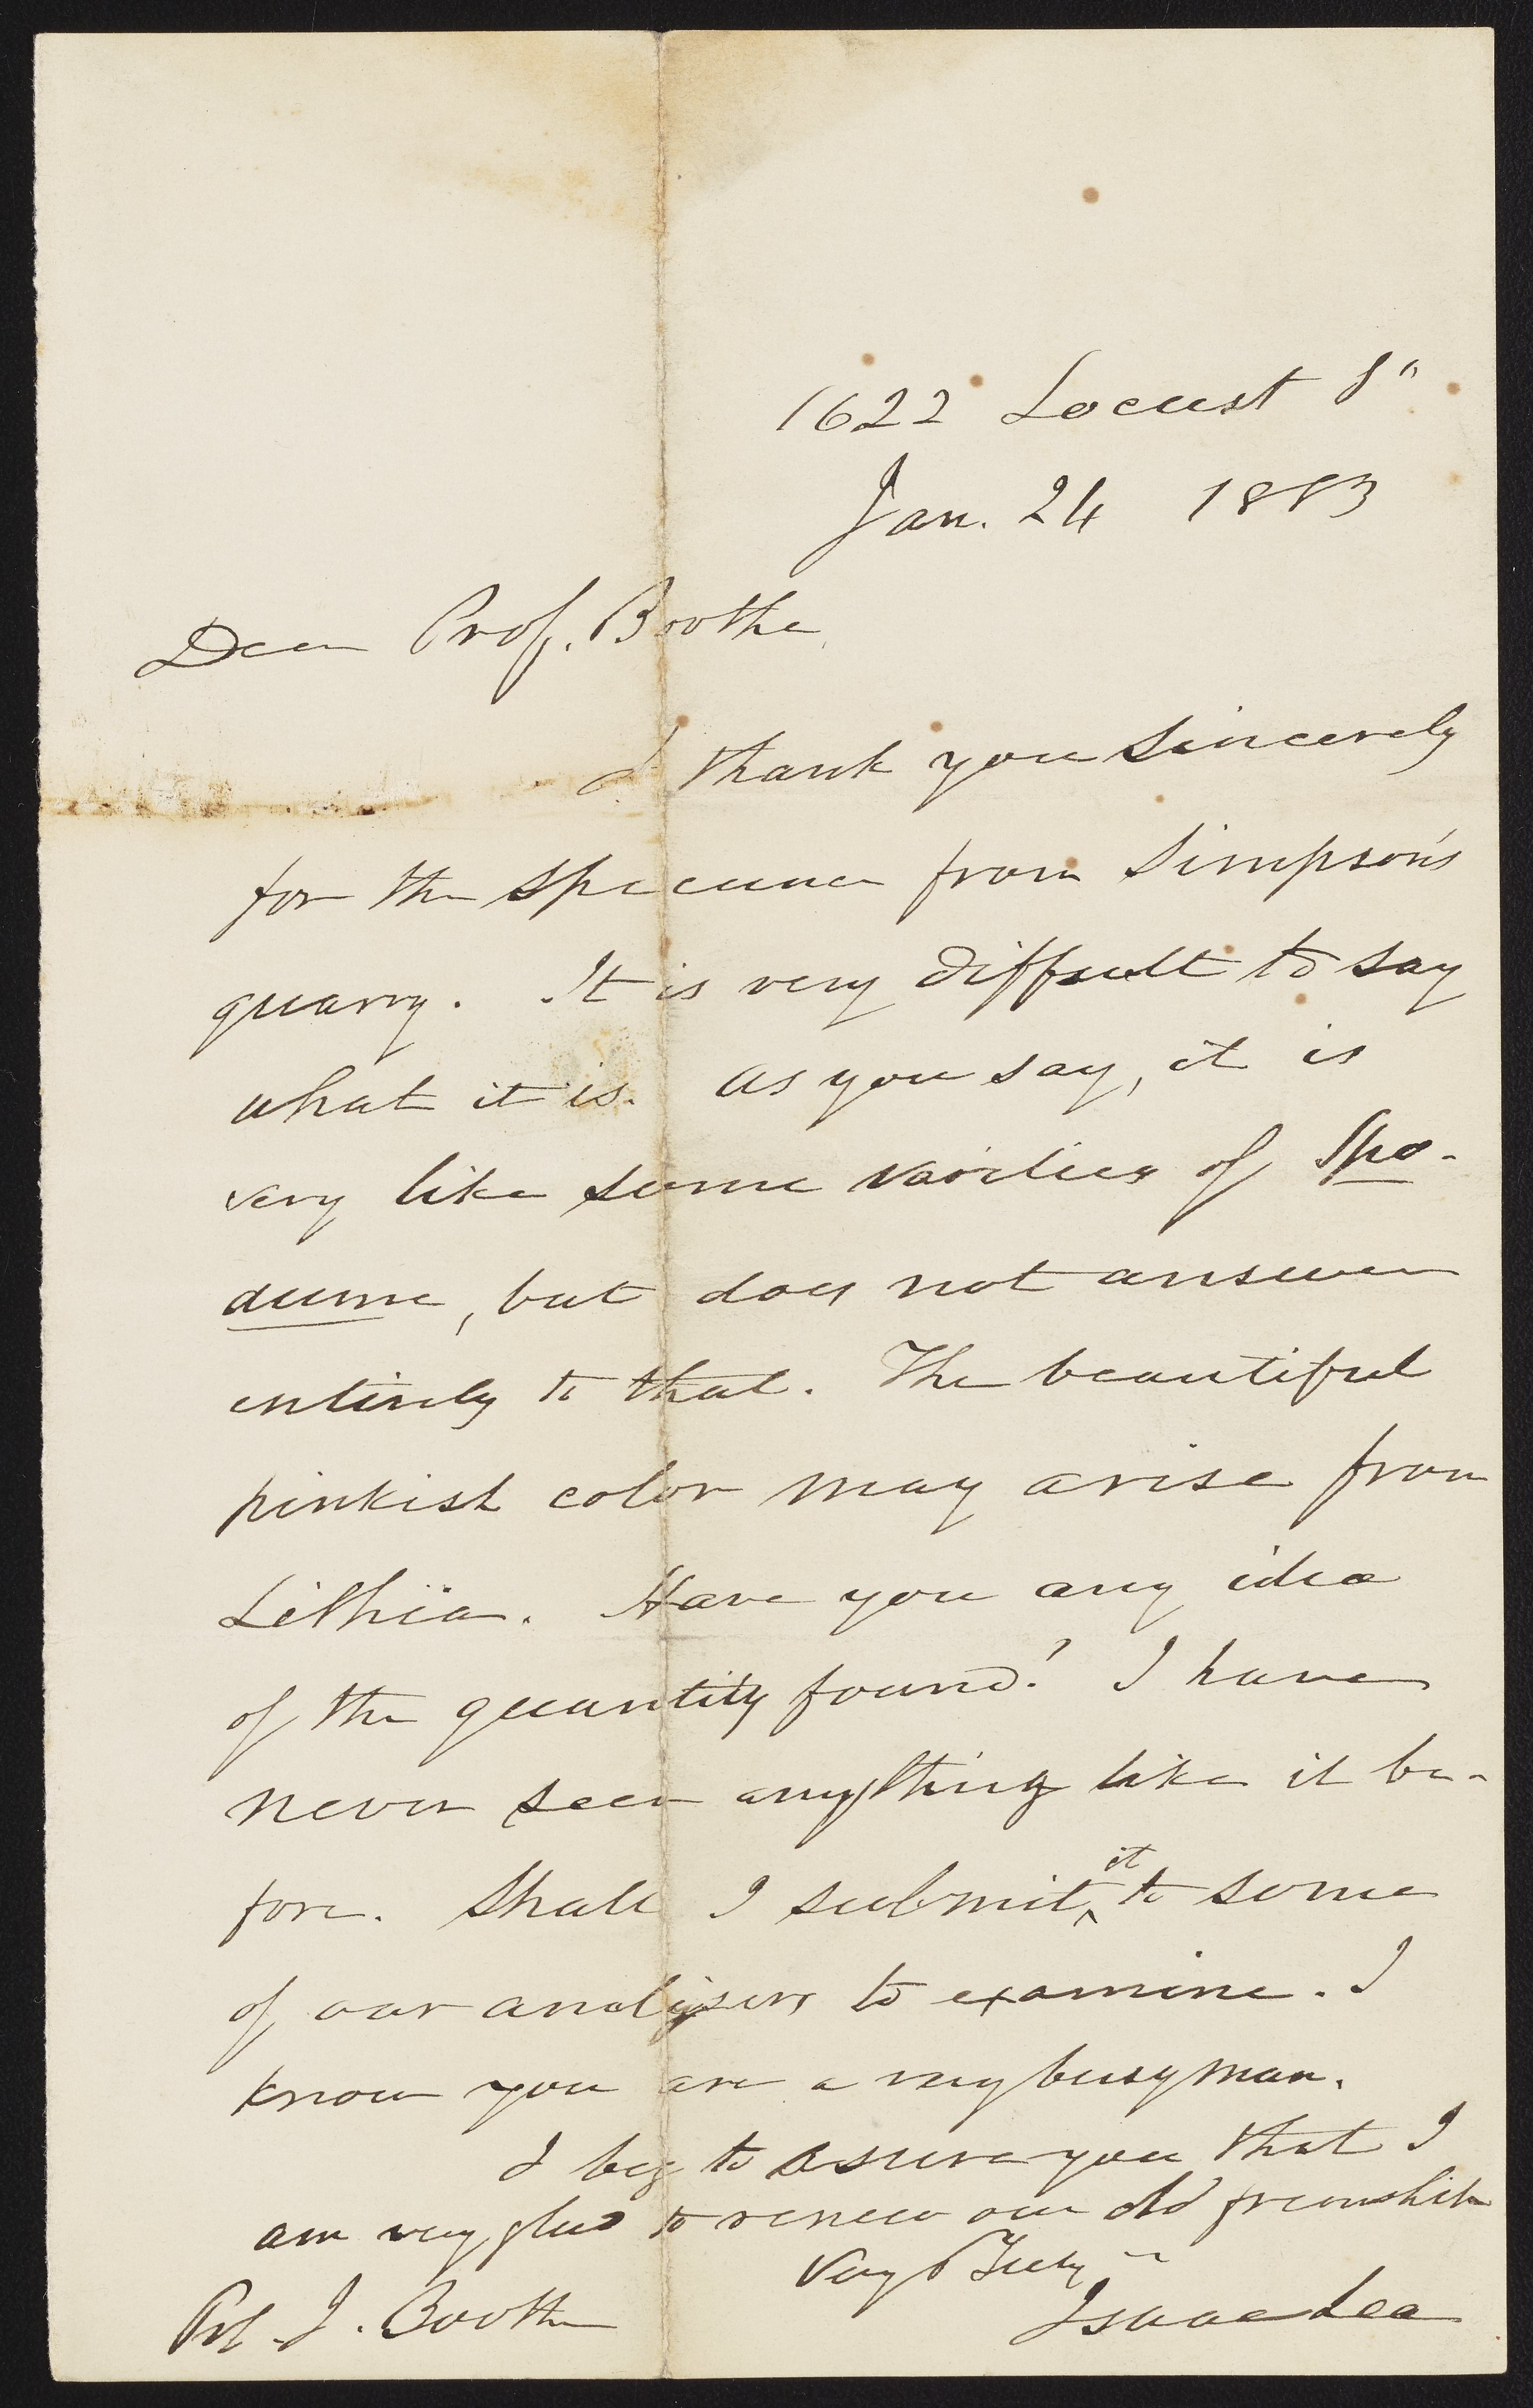 1622 Locust St
Jan. 24 1883
Dear Prof. Boothe,
I thank you sincerely
for the specimen from Simpson's
quarry. It is very difficult to say
what it is. As you say, it is
very like some varieties of Spo-
dume, but does not answer
entirely to that. The beautiful
pinkish color may arise from
Lithia. Have you any idea
of the quantity found? I have
never seen anything like it be-
fore. Shall I submit it to some
of our analysers to examine. I
know you are a very busy man.
I beg to assure you that I
am very glad to renew our old friendship
Very Truly
Isaac Lea
Prof J. Boothe